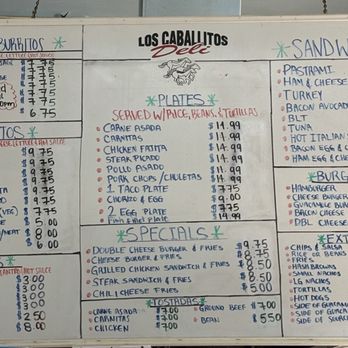 LOS CABALLITOS
Deli
BURRITOS
$7.75
$7.75
$7.75
$7.75
$7.75
6.75
9.75
9.75
9.75
9.75
9.75
8.00
6.00
3.00
3.00
3.00
3.00
2.50
$8.00
*PLATES*
SERVED W/RICE, BEANS, & TORTILLAS
CARNE ASADA $14.99
CARNITAS $14.99
CHICKEN FAJITA $14.99
STEAK PICADO $14.99
POLLO ASADO $14.99
PORK CHOPS/CHULETAS $14.99
1 TACO PLATE $7.75
CHORIZO & EGG
2 EGG PLATE
*SPECIALS*
DOUBLE CHEESE BURGER & FRIES $9.75
CHEESE BURGER & FRIES $8.75
GRILLED CHICKEN SANDWICH & FRIES $8.50
STEAK SANDWICH & FRIES
CHILI CHEESE FRIES $5.00
*TOSTADAS*
CARNE ASADA $7.00
CARNITAS $7.00
CHICKEN $7.00
GROUND BEEF $7.00
BEAN $5.50
SANDW
PASTRAMI
HAM & CHEESE
TURKEY
BACON AVOCAD
BLT
TUNA
HOT ITALIAN
BACON EGG &
HAM EGG & CHE
*BURG
HAMBURGER
CHEESE BURGER
GUACAMOLE BURG
BACON CHEESE
DBL. CHEESE BU
*EXT
CHIPS & SALSA
RICE OR BEANS
FRIES
HASHBROWNS
SMALL NACHOS
LG NACHOS
TORTILLAS
HOT DOGS
SIDE OF GUACA
SIDE OF SOUR
SIDE OF